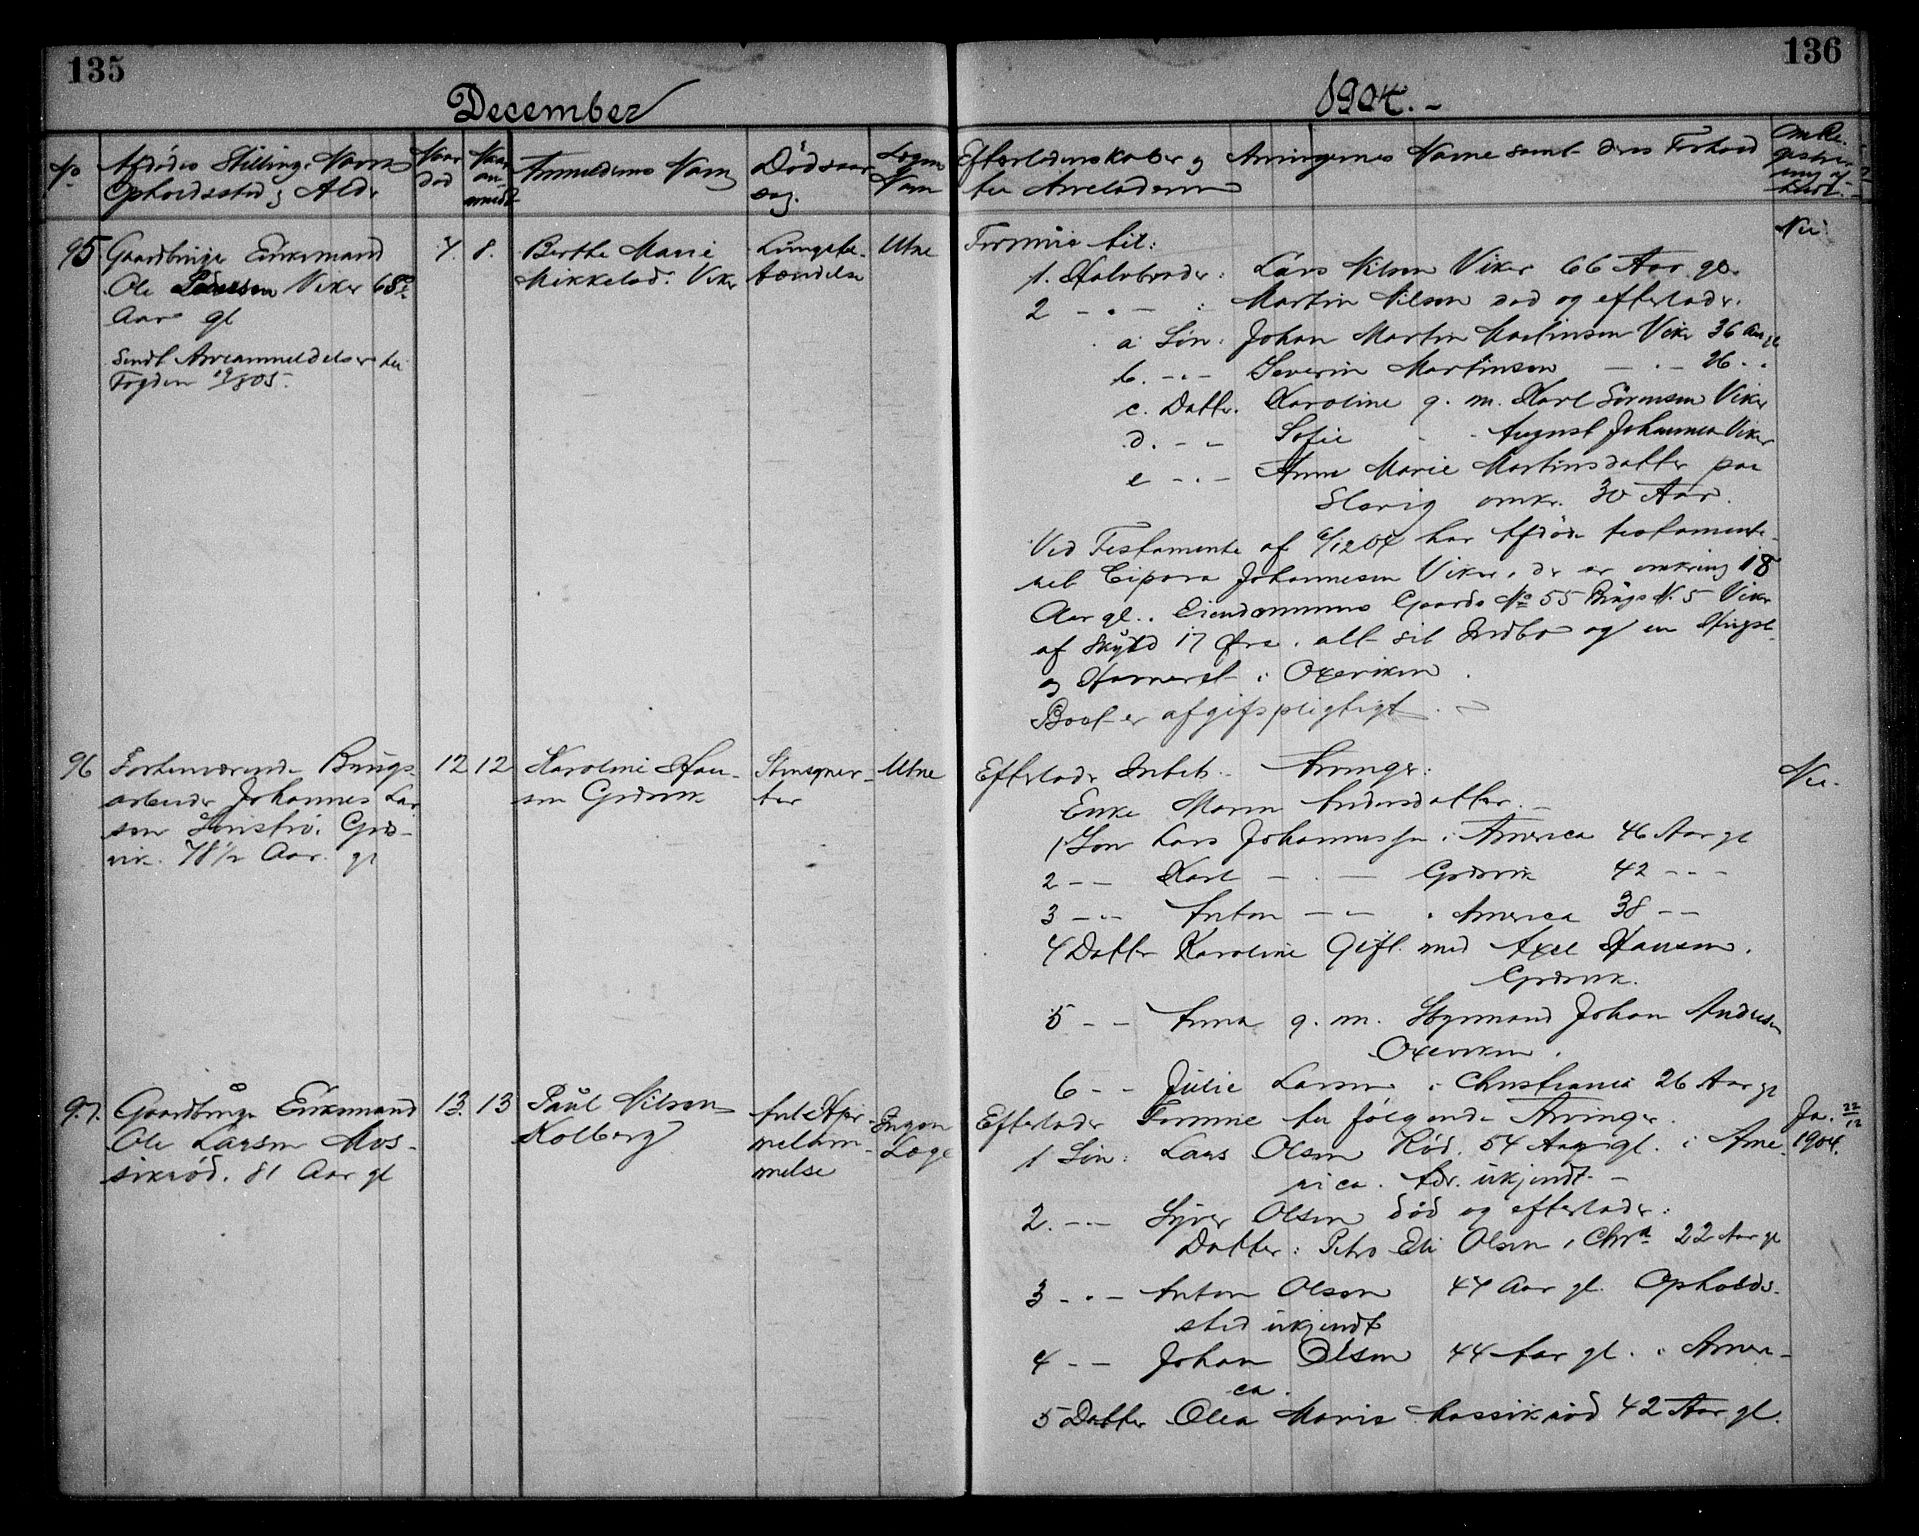 135
136
December
1904. -
No
Afdødes Stilling, Navn
Opholdssted & Alder
Naar
død
Naar
an-
meldt
Anmelderens Navn
Dødsaar-
sag.
Sogn
Navn
Efterladenskaber og Arvingernes Navne samt deres Forhold
til Arveladeren
Om Re-
gistrer-
ing af
95
Gaardbruger Enkemand
Ole Viker 68
Aar gl
Sendt Arveanmeldelse til
Fogden 19/8 05.
7. 8.
Berthe Marie
Mikkelsd. Viker
Lungebe-
tændelse
Utne
Formue til:
1. Halvbroder: Lars Nilsen Viker 66 Aar gl.
2 - " - : Martin Nilsen død og efterlader:
a Søn: Johan Martin Martinsen Viker 36 Aar gl
b. - " - Severin Martinsen - " - 26 " "
c. Datter. Karoline g. m. Karl Sörensen Viker
d. - - Sofie - - August Johannesen Viker
e - " - Anne Marie Martinsdatter paa
Slevig omkr. 30 Aar.
Ved Testamente af 6/12 04 har Afdøde testamente-
ret Cipora Johannesen Viker, der er omkring 18
Aar gl.. Eiendommen Gaards No 55 Brugs N. 5 Viker
af Skyld 17 Øre, alt sit Indbo og en Hingst
og Havneret i Oxeviken.
Boet er afgifspligtigt.
Nei
96
Forhenværende Brugs-
arbeider Johannes Lar
sen Gres-
vik. 78 1/2 Aar gl
12 12
Karoline Han-
sen Gresvik
Utne
Efterlader Intet. Arvinger:
Enke Maren Andersdatter. -
1 Søn Lars Johannessen i America 46 Aar gl
2 - - Karl - " - Gresvik 42 - - -
3 - " - Anton - " - i America 38 - -
4 Datter Karoline Gift med Axel Hansen.
Gresvik.
5 - - Anna g. m. Styrmand Johan Andresen
Oxeviken.
6 - - Julie Larsen i Christiania 26 Aar gl
Nei.
97.
Gaardbruger Enkemand
Ole Larsen Mos-
sikrød. 81 Aar gl
13. 13
Paul Nilsen
Kolberg
Ant. Hjer-
nelam-
melse
Ingen
Læge
Efterlader Formue til følgende Arvinger.
1 Søn: Lars Olsen Rød. 54 Aar gl. i Ame-
rica. Adr. ukjendt. -
2. - " - Syver Olsen død og efterlader:
Datter: Olsen i Chra 22 Aar gl
3 - " - Anton Olsen 47 Aar gl. Opholds-
sted ukjendt
4 - - Johan Olsen 44 Aar gl. i Ameri-
ca.
5 Datter Olea Marie Mossikrød 42 Aar gl.
Ja. 22/12
1904.